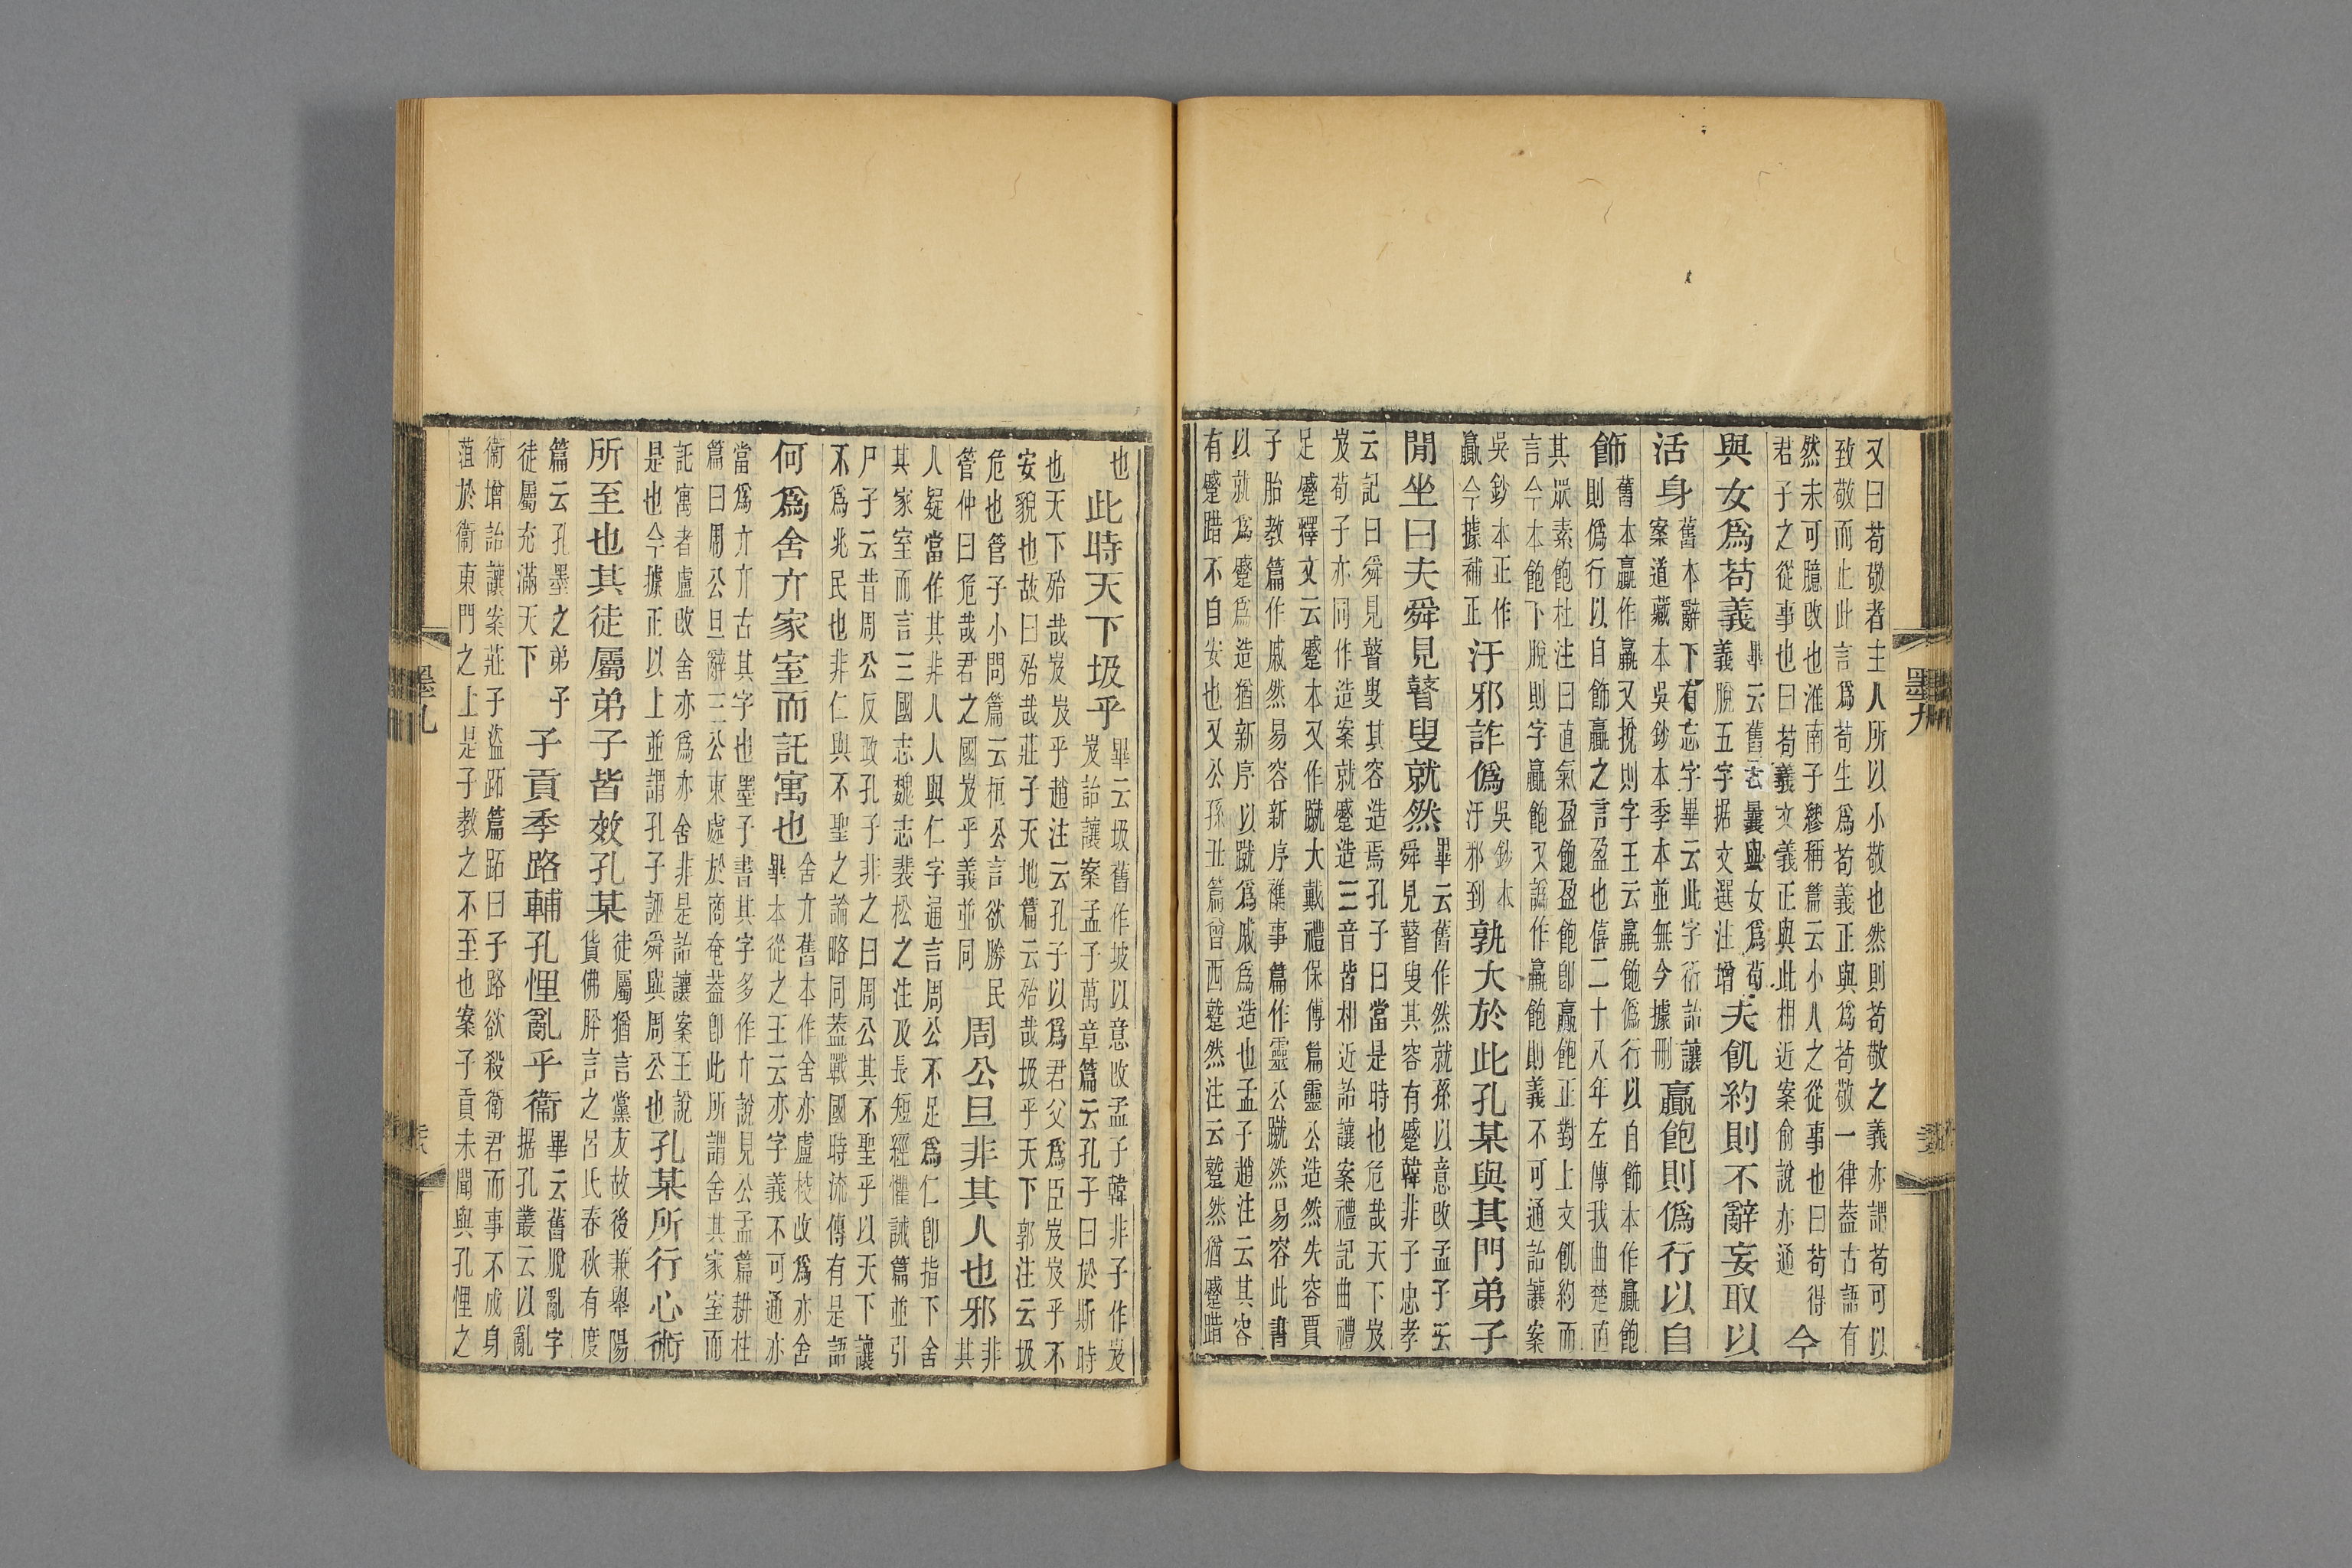 又曰苟敬者主人所以小敬也然則苟敬之義亦謂苟可以
致敬而止此言爲苟生爲苟義正與爲苟敬一律葢古語有
然未可臆改也淮南子繆稱篇云小人之從事也曰苟得
君子之從事也曰苟義文義正與此相近案俞說亦通
今
與女爲苟義畢云舊云曩與女爲苟義脫五字据文選注增夫飢約則不辭妄取以
活身舊本辭下有忘字畢云此字衍詒讓案道藏本吳鈔本季本並無今據刪贏飽則僞行以自
飾舊本贏作羸又挩則字王云羸飽僞行以自飾本作贏飽則僞行以自飾贏之言盈也僖二十八年左傳我曲楚直
其眾素飽杜注曰直氣盈飽盈飽卽贏飽正對上文飢約而
言今本飽下脫則字贏飽又譌作羸飽則義不可通詒讓案
吳鈔本正作贏今據補正汙邪詐僞吳鈔本汙邪到孰大於此孔某與其門弟子
閒坐曰夫舜見瞽叟就然畢云舊作然就孫以意改孟子云舜見瞽叟其容有蹙韓非子忠孝
云記曰舜見瞽叟其容造焉孔子曰當是時也危哉天下岌
岌荀子亦同作造案就蹙造三音皆相近詒讓案禮記曲禮
足蹙釋文云蹙本又作蹴大戴禮保傅篇靈公造然失容賈
子胎教篇作戚然易容新序襍事篇作靈公蹴然易容此書
以就爲蹙爲造猶新序以蹴爲戚爲造也孟子趙注云其容
有蹙踖不自安也又公孫丑篇曾西蹵然注云蹵然猶蹙踖
墨九
也此時天下圾乎畢云圾舊作坡以意改孟子韓非子作岌岌詒讓案孟子萬章篇云孔子曰於斯時
也天下殆哉岌岌乎趙注云孔子以爲君父爲臣岌岌乎不
安貌也故曰殆哉莊子天地篇云殆哉圾乎天下郭注云圾
危也管子小問篇云桓公言欲勝民
管仲曰危哉君之國岌乎義並同
周公旦非其人也邪非其
人疑當作其非人人與仁字通言周公不足爲仁卽指下舍
其家室而言三國志魏志裴松之注及長短經懼誡篇並引
尸子云昔周公反政孔子非之曰周公其不聖乎以天下讓
不爲兆民也非仁與不聖之論略同葢戰國時流傳有是語
何爲舍亓家室而託寓也舍亓舊本作舍亦盧校改爲亦舍畢本從之王云亦字義不可通亦
當爲亓亓古其字也墨子書其字多作亓說見公孟篇耕柱
篇曰周公旦辭三公東處於商奄葢卽此所謂舍其家室而
託寓者盧改舍亦爲亦舍非是詒讓案王說
是也今據正以上並謂孔子誣舜與周公也
孔某所行心術
所至也其徒屬弟子皆效孔某徒屬猶言黨友故後兼舉陽貨佛肸言之呂氏春秋有度
篇云孔墨之弟子徒屬充滿天下子貢季路輔孔悝亂乎衞畢云舊脫亂字据孔叢云以亂
衞增詒讓案莊子盜跖篇跖曰子路欲殺衞君而事不成身
菹於衞東門之上是子教之不至也案子貢未聞與孔悝之
墨九